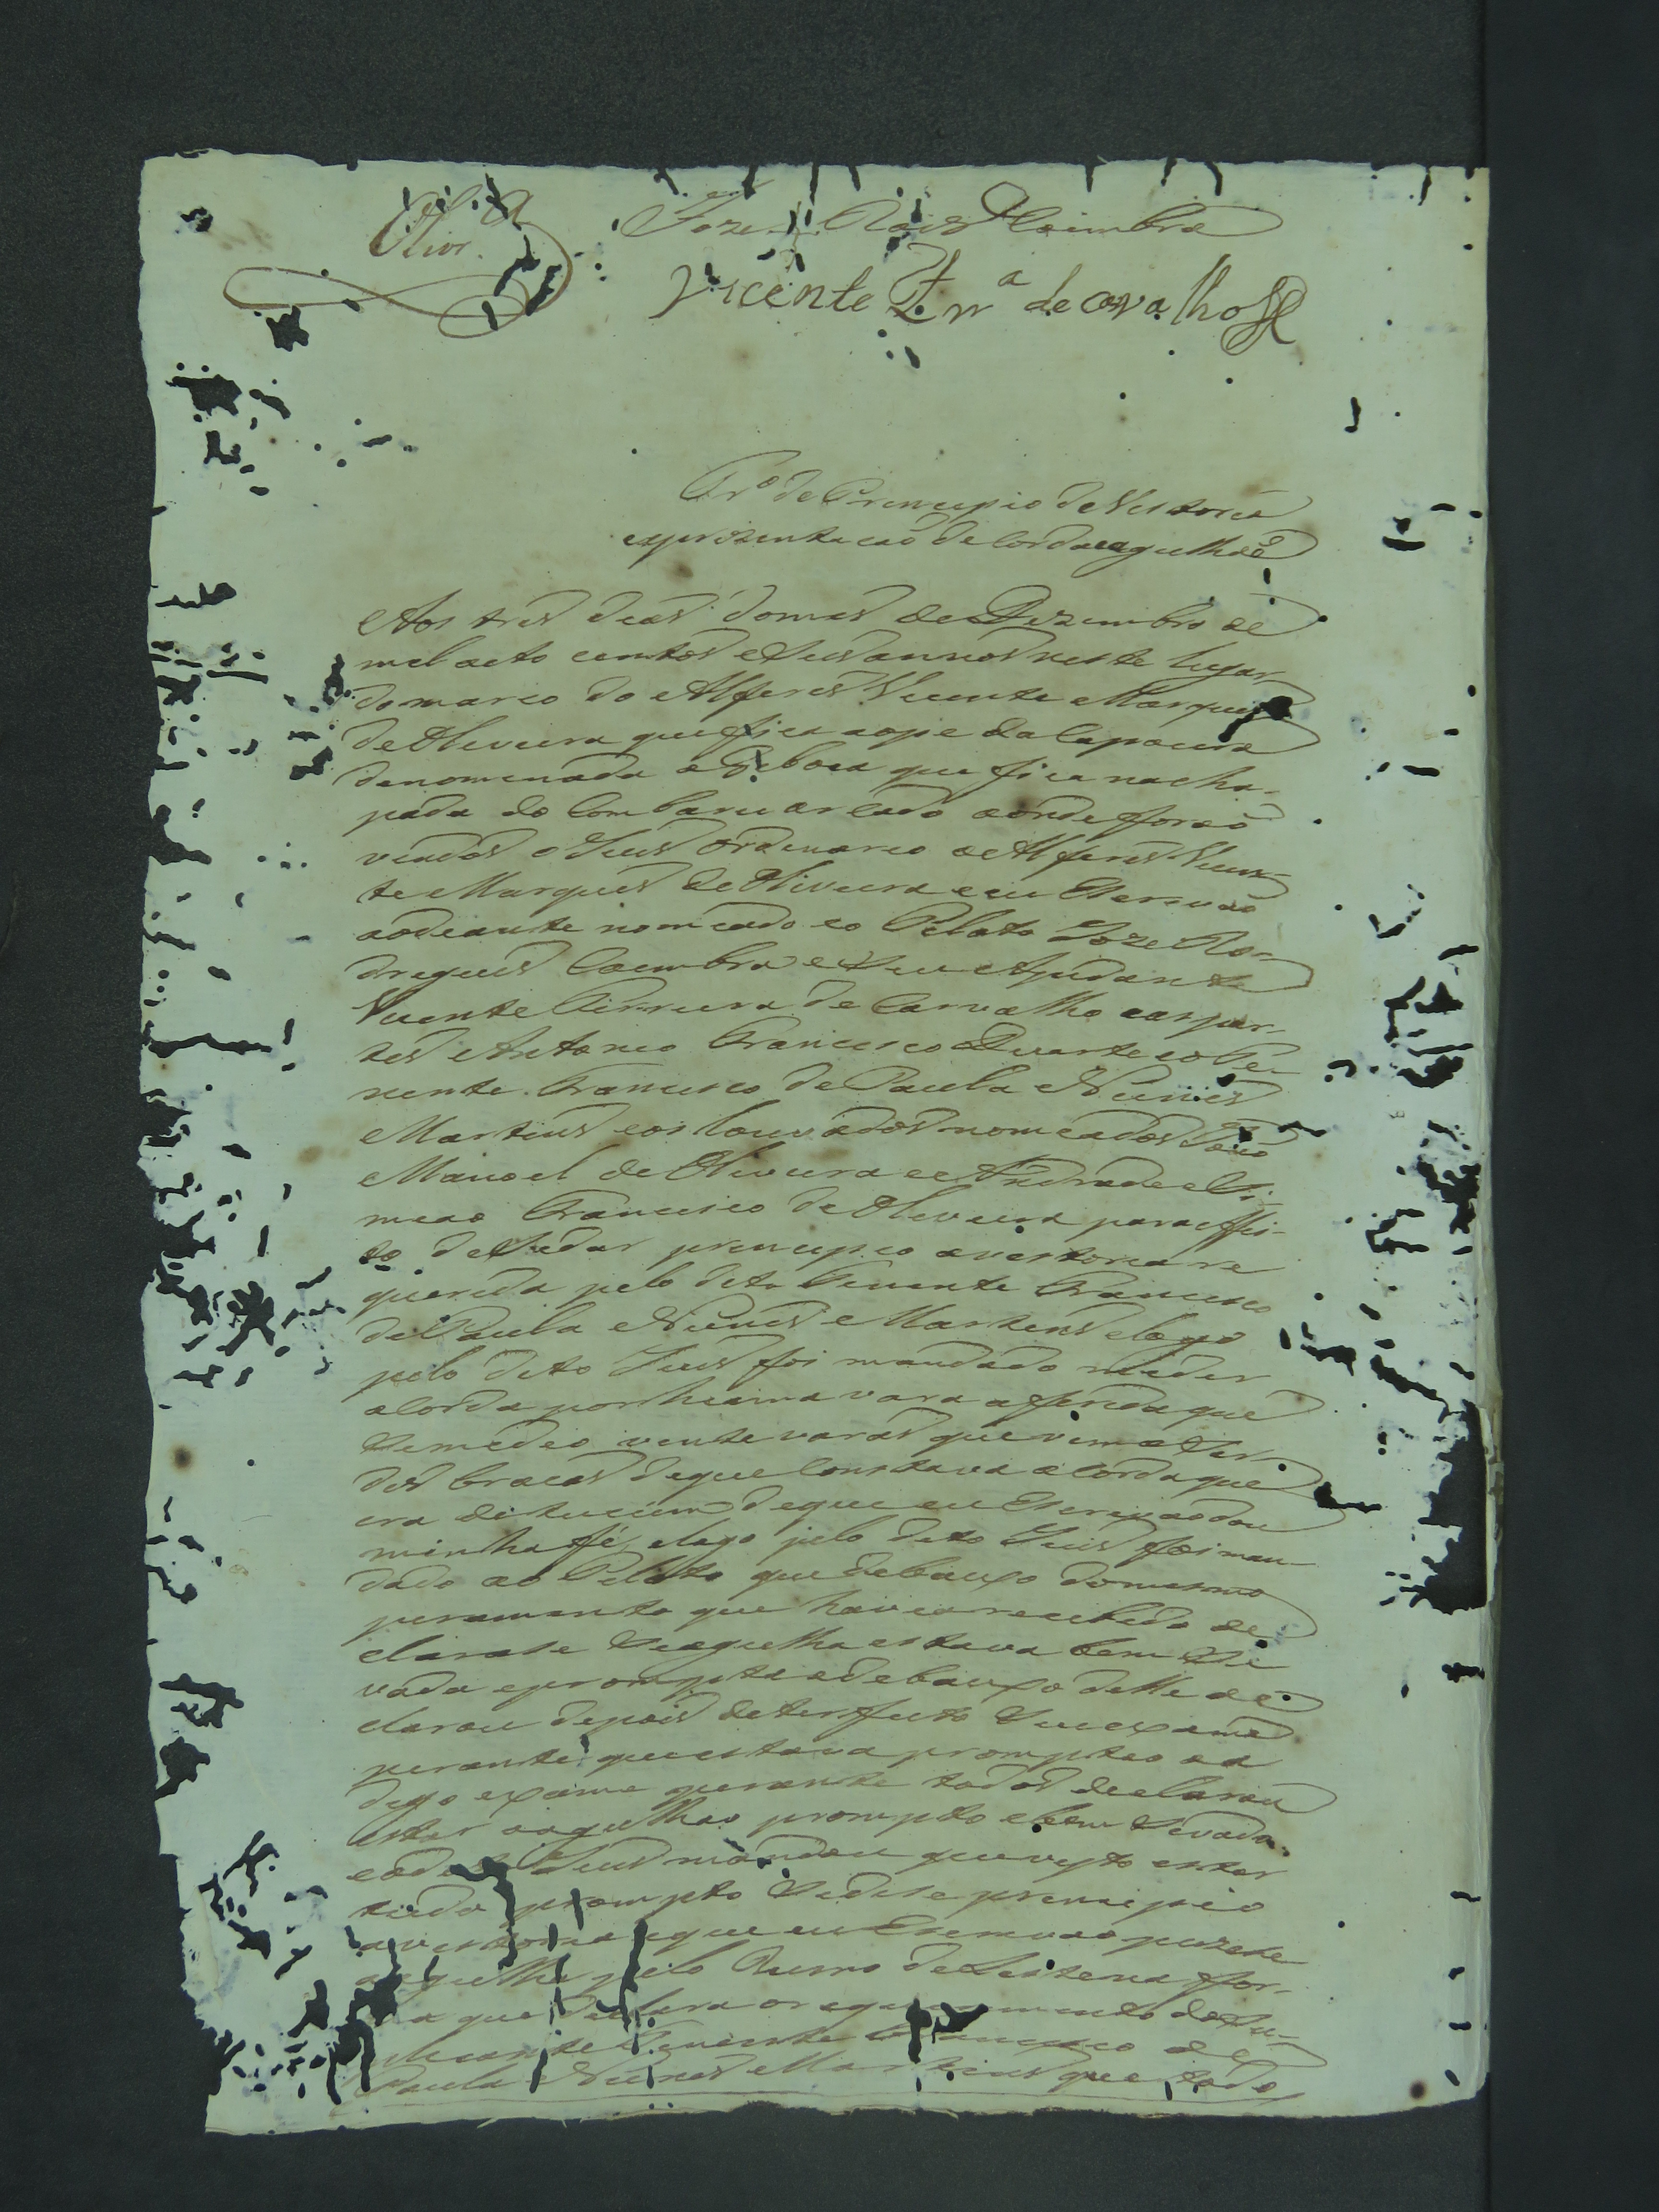 Olivr.ª
Joze Roiz Coimbra
Vicente Frrª de carvalho
Tr.º de Principio de Vestoria
eaprizentacaõ de Cordaeagulhaê
Aos tres dias domes de Dezembro de
mil oito centos eseis annos neste lugar
domarco do Alferes Vicente Marques
de Oliveira que fica aope da Capoeira
denomenada a que fica nacha-
pada do aonde foraõ
vindos o Juis ordinario o Alferes Vicen-
te Marques de Oliveira eeu Escrivaõ
aodiante nomeado eo Piloto Joze Ro-
drigues Coimbra eseu Ajudante
Vicente Ferreira de Carvalho easpar-
tes Antonio Francisco Duarte eoTe-
nente Francisco de Paula Nunes
Martins eos louvados nomeados Joaõ
Manoel de Oliveira e Andrade eSi-
meao Francisco de Oliveira para effei-
to deSedar principio avestoriare
querida pelo dito Tenente Francisco
de Paula Nunes Martins elogo
pelo dito Juis foi mandado medir
aCorda porhuma vara aferidaque
Semedio vinte varas que vem aSer
des bracas deque Constava aCordaque
era deTucum deque eu Escrivaõdou
minha fé, elogo pelo dito Juis foi man-
dado ao Piloto quedebaixo domesmo
juramento que havia recebido de
clarase Seaagulha estava bem Se
vada eprompta edebaixo delle de
clarou depois deterfeito Seuexame
perante queestava promptao ea
digo exame perante todos declarou
estar aagulhao prompto ebem Sevada
eodito Juis mandou quevisto estar
tudo prompto Sedese principio
avestoria eque eu Escrivaõ puzese
aagulha pelo Rumo de Leste na for-
ma que declara orequerimento doSu-
plicante Tenente Francisco de
Paula Nunes Martins que todo